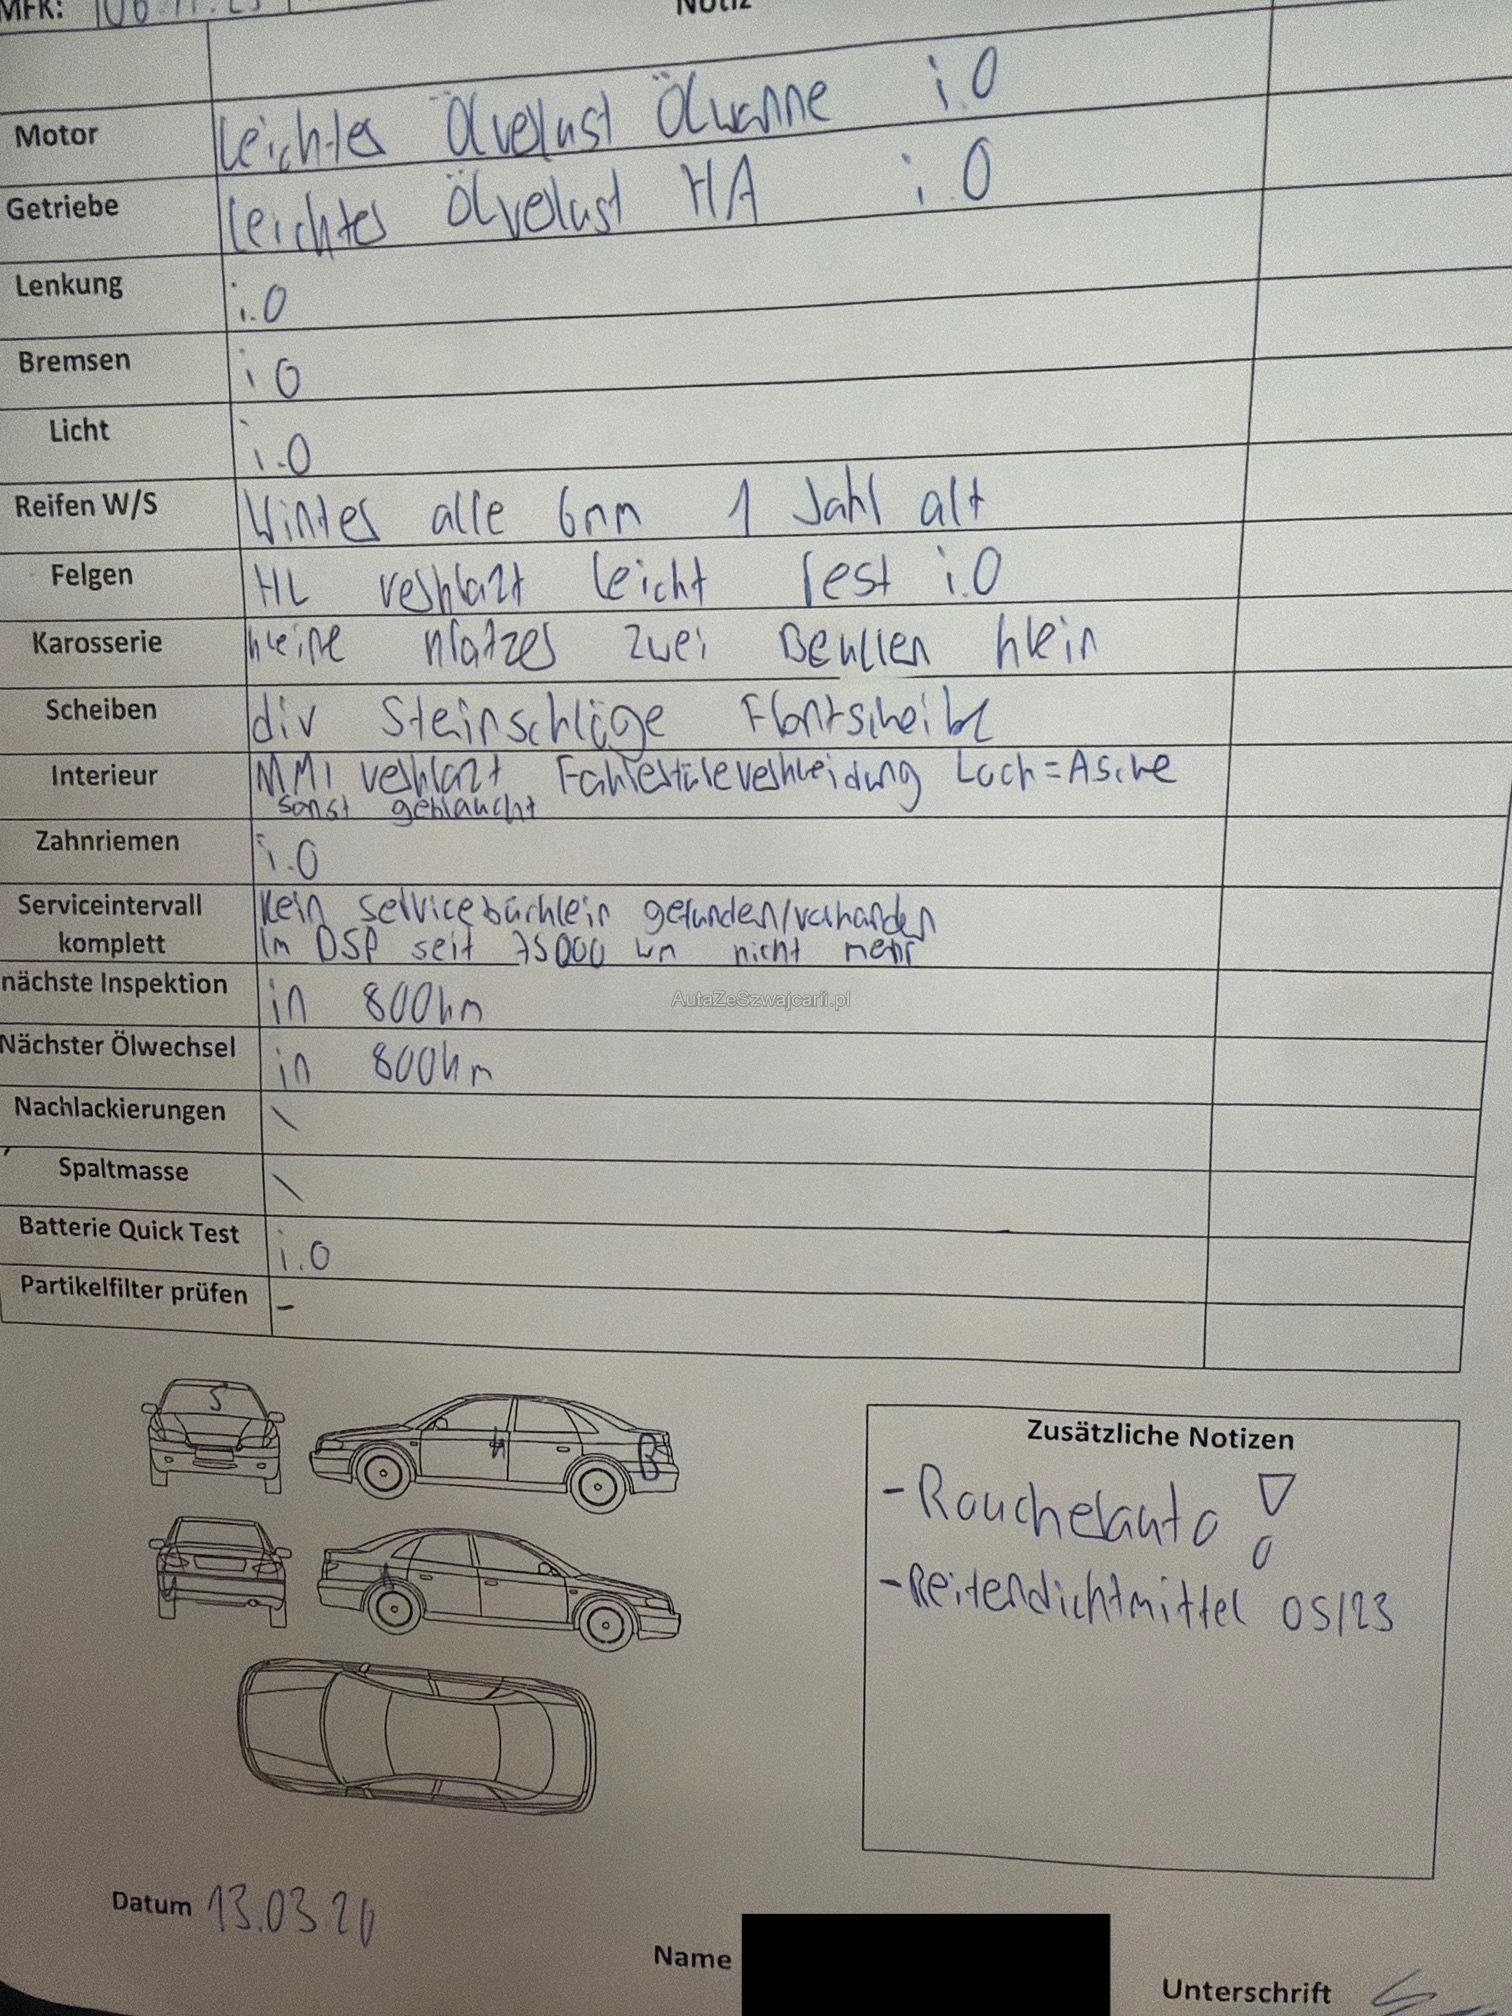 MFK: 06.11.23
Notiz
Motor leichtes Ölverlust Ölwanne i.O
Getriebe leichtes Ölverlust HA i.O
Lenkung i.O
Bremsen i O
Licht i.O
Reifen W/S Winter alle 6mm 1 Jahr alt
Felgen HL verkratzt leicht rest i.O
Karosserie kleine kratzer zwei Beullen klein
Scheiben div Steinschläge Frontscheibe
Interieur MMI verkratzt Fahrertüreverkleidung Loch=Asche
sonst gebraucht
Zahnriemen i.O
Serviceintervall Kein servicebüchlein gefunden/vorhanden
komplett Im DSP seit 75000 km nicht mehr
nächste Inspektion in 800km
Nächster Ölwechsel in 800km
Nachlackierungen \
Spaltmasse \
Batterie Quick Test i.O
Partikelfilter prüfen -
AutaZeSzwajcarii.pl
S
B
Zusätzliche Notizen
- Raucherauto !
- Reifendichtmittel 05/23
Datum 13.03.26
Name
Unterschrift